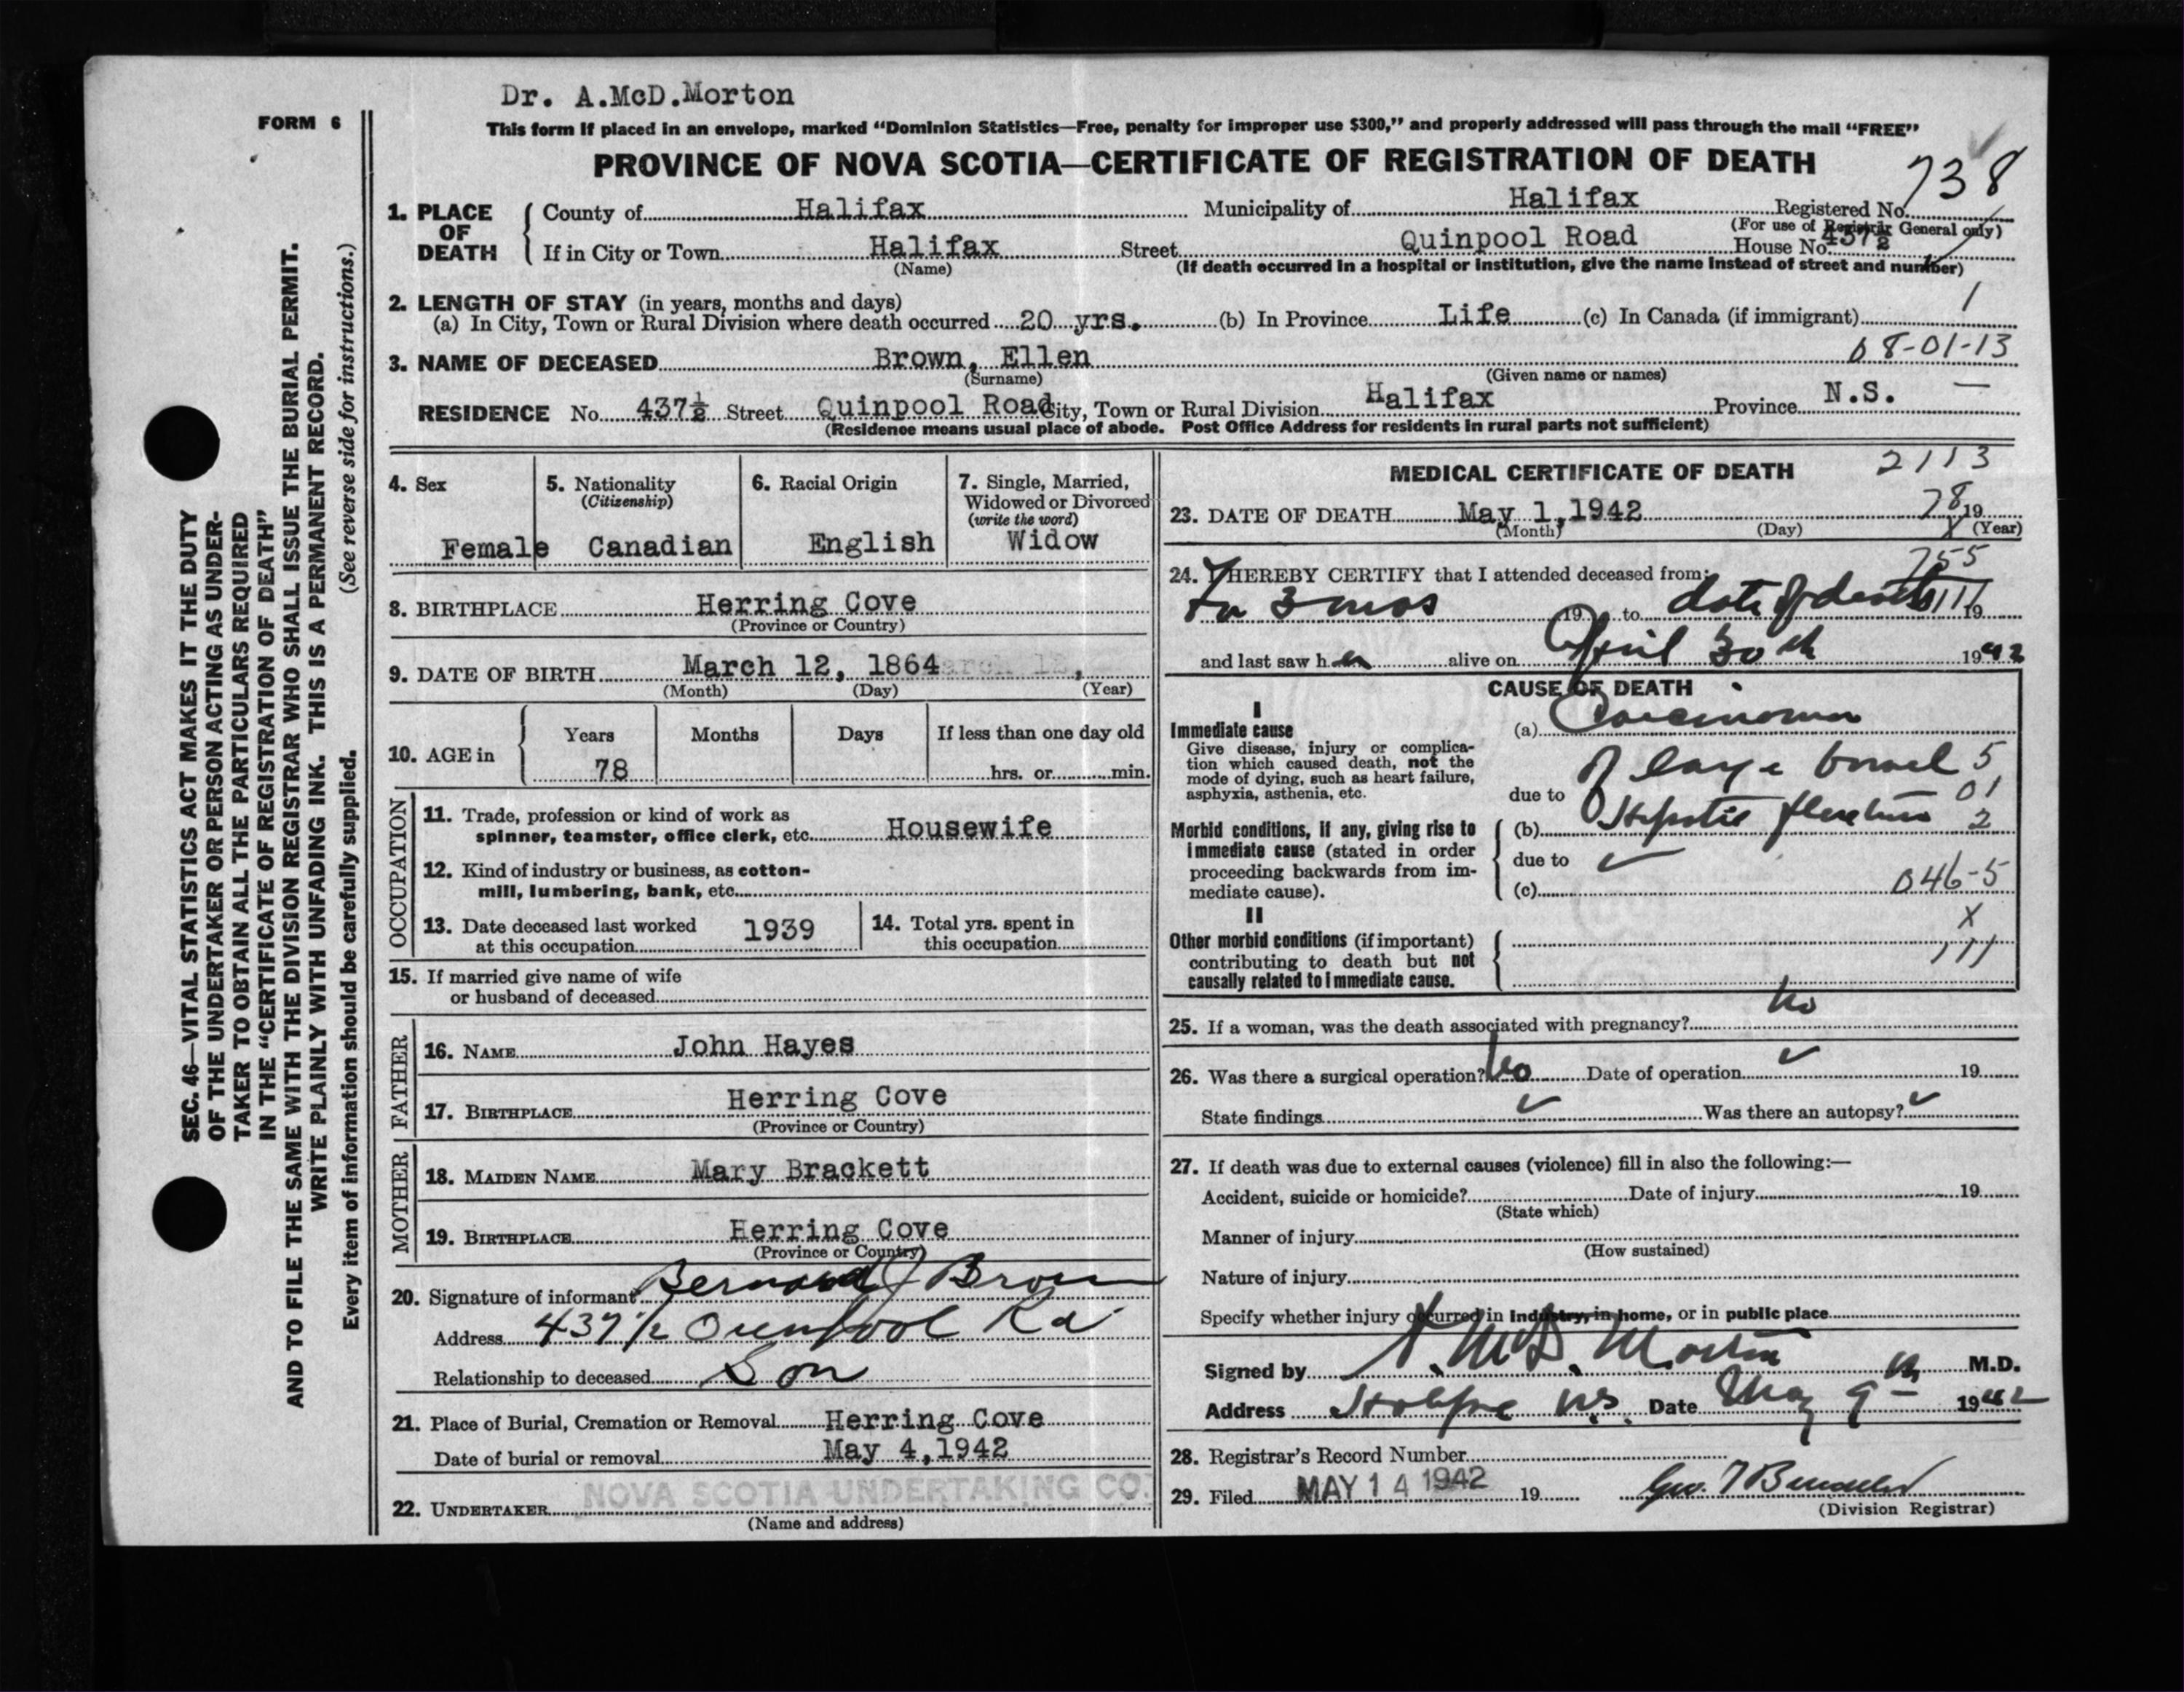 Dr. A.McD.Morton
FORM 6
This form if placed in an envelope, marked “Dominion Statistics—Free, penalty for improper use $300,” and properly addressed will pass through the mail “FREE”
PROVINCE OF NOVA SCOTIA—CERTIFICATE OF REGISTRATION OF DEATH
738
1. PLACE OF DEATH
County of Halifax Municipality of Halifax Registered No.
(For use of Registrar General only)
If in City or Town Halifax Street Quinpool Road House No. 437½
(Name) (If death occurred in a hospital or institution, give the name instead of street and number)
2. LENGTH OF STAY (in years, months and days)
(a) In City, Town or Rural Division where death occurred 20 yrs. (b) In Province Life (c) In Canada (if immigrant) /
08-01-13
3. NAME OF DECEASED Brown, Ellen
(Surname) (Given name or names)
RESIDENCE No. 437½ Street Quinpool Road City, Town or Rural Division Halifax Province N.S. —
(Residence means usual place of abode. Post Office Address for residents in rural parts not sufficient)
4. Sex
Female
5. Nationality
(Citizenship)
Canadian
6. Racial Origin
English
7. Single, Married,
Widowed or Divorced
(write the word)
Widow
8. BIRTHPLACE Herring Cove
(Province or Country)
9. DATE OF BIRTH March 12, 1864
(Month) (Day) (Year)
10. AGE in
Years Months Days If less than one day old
78 hrs. or min.
OCCUPATION
11. Trade, profession or kind of work as
spinner, teamster, office clerk, etc. Housewife
12. Kind of industry or business, as cotton-
mill, lumbering, bank, etc.
13. Date deceased last worked
at this occupation 1939
14. Total yrs. spent in
this occupation
15. If married give name of wife
or husband of deceased
FATHER
16. NAME John Hayes
17. BIRTHPLACE Herring Cove
(Province or Country)
MOTHER
18. MAIDEN NAME Mary Brackett
19. BIRTHPLACE Herring Cove
(Province or Country)
20. Signature of informant Bernard J Brown
Address 437 1/2 Quinpool Rd
Relationship to deceased Son
21. Place of Burial, Cremation or Removal Herring Cove
Date of burial or removal May 4, 1942
22. UNDERTAKER NOVA SCOTIA UNDERTAKING CO.
(Name and address)
MEDICAL CERTIFICATE OF DEATH 2113
23. DATE OF DEATH May 1, 1942 78 19
(Month) (Day) X (Year)
755
24. I HEREBY CERTIFY that I attended deceased from:
For 3 mos 19 to date of death 19
and last saw her alive on April 30th 1942
CAUSE OF DEATH
I
Immediate cause
Give disease, injury or complica-
tion which caused death, not the
mode of dying, such as heart failure,
asphyxia, asthenia, etc.
(a) Carcinoma
of large bowel 5
due to 01
(b) Hepatic flexture 2
Morbid conditions, if any, giving rise to
immediate cause (stated in order
proceeding backwards from im-
mediate cause).
due to ✓
(c) 046-5
II
X
Other morbid conditions (if important)
contributing to death but not
causally related to immediate cause.
111
25. If a woman, was the death associated with pregnancy? No
26. Was there a surgical operation? No Date of operation ✓ 19
State findings ✓ Was there an autopsy? ✓
27. If death was due to external causes (violence) fill in also the following:—
Accident, suicide or homicide? Date of injury 19
(State which)
Manner of injury
(How sustained)
Nature of injury
Specify whether injury occurred in industry, in home, or in public place
Signed by A. McD. Morton M.D.
Address Halifax N.S. Date May 9th 1942
28. Registrar's Record Number
29. Filed MAY 14 1942 19
(Division Registrar)
SEC. 46—VITAL STATISTICS ACT MAKES IT THE DUTY
OF THE UNDERTAKER OR PERSON ACTING AS UNDER-
TAKER TO OBTAIN ALL THE PARTICULARS REQUIRED
IN THE “CERTIFICATE OF REGISTRATION OF DEATH”
AND TO FILE THE SAME WITH THE DIVISION REGISTRAR WHO SHALL ISSUE THE BURIAL PERMIT.
WRITE PLAINLY WITH UNFADING INK. THIS IS A PERMANENT RECORD.
Every item of information should be carefully supplied. (See reverse side for instructions.)